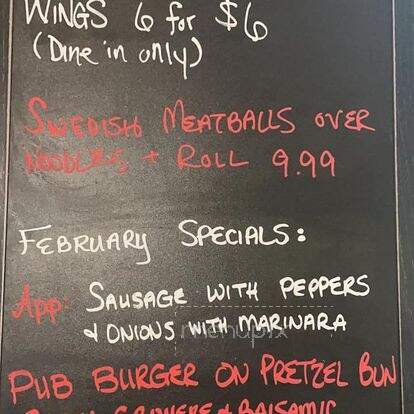 WINGS 6 for $6
(Dine in only)
SWEDISH MEATBALLS OVER
NOODLES + ROLL 9.99
FEBRUARY SPECIALS:
App: SAUSAGE WITH PEPPERS
& ONIONS WITH MARINARA
menupix
PUB BURGER ON PRETZEL BUN
GRUYERE & BALSAMIC